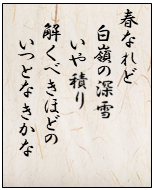 春なれど
白嶺の深雪
いや積り
解くべきほどの
いつとなきかな